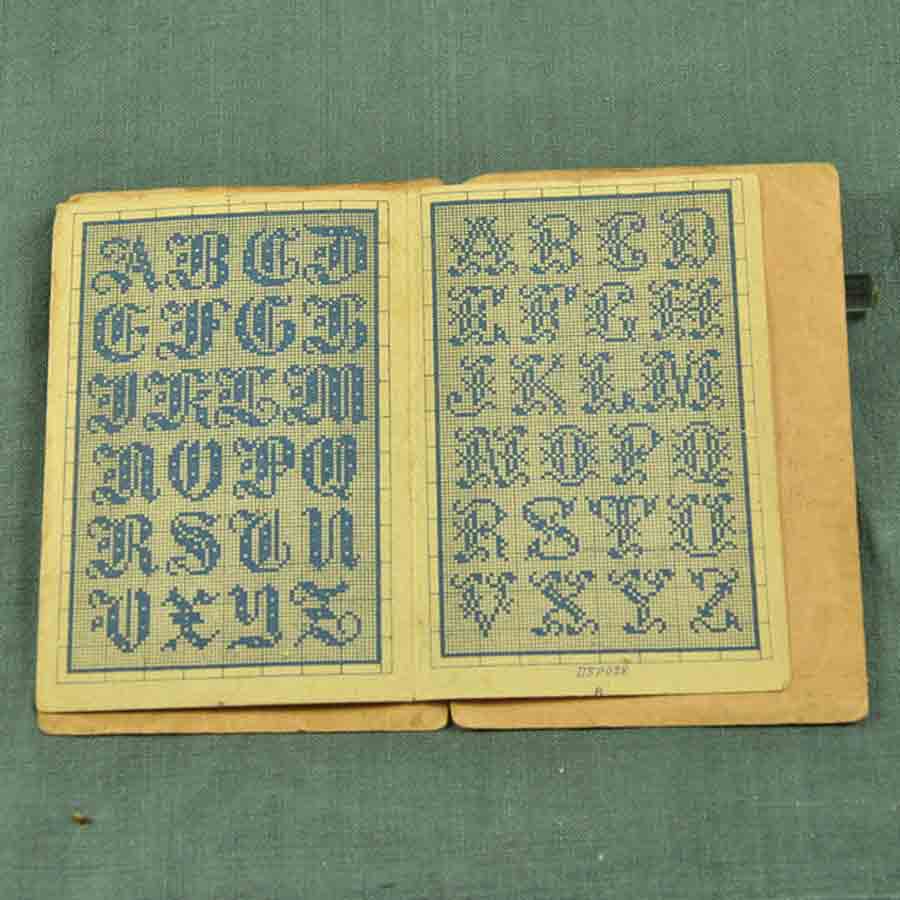 A B C D
E F G H
I K L M
N O P Q
R S T U
V X Y Z
A B C D
E F G H
J K L M
N O P Q
R S T U
V X Y Z